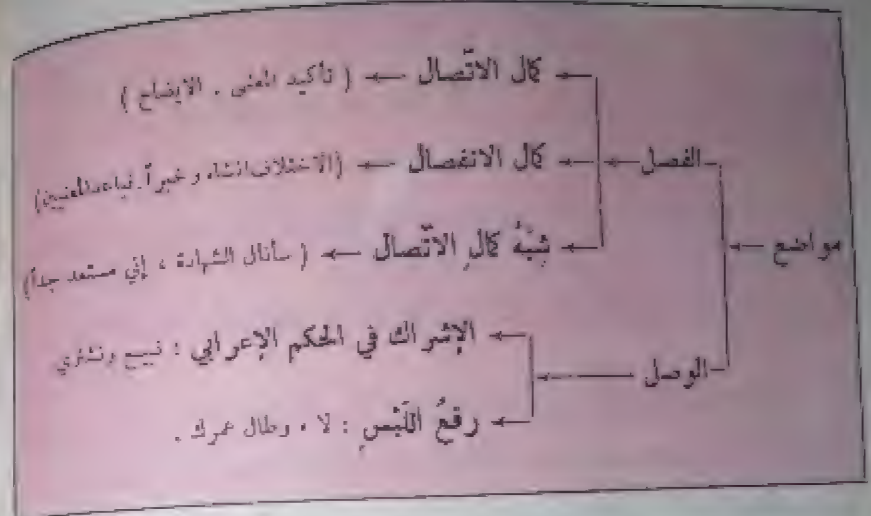 مواضع
الفصل
كمال الاتّصال ← ( تأكيد المعنى . الايضاح )
كمال الانفصال ← (الاختلاف انشاء و خبراً . تباعد المعنيين)
شِبْهُ كمالِ الاتّصال ← ( سأنال الشهادة ، إني مستعد جداً)
الوصل
الإشراك في الحكم الإعرابي : نبيع ونشتري
رفعُ اللَّبْسِ : لا ، وطال عمرك .